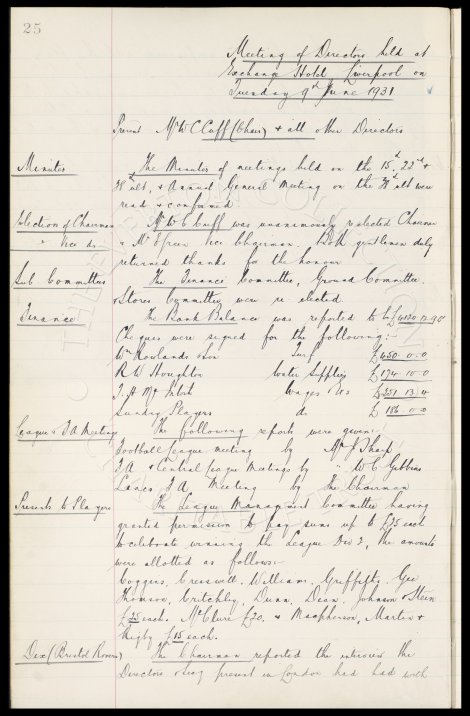 25
Meeting of Directors held at
Exchange Hotel Liverpool on
Tuesday 9th June 1931
Present Mr W C Cuff (Chair) & all other Directors
Minutes The Minutes of meetings held on the 15th, 22nd &
ult. & Annual General Meeting on the ult were
read & confirmed
Election of Chairman Mr W C Cuff was unanimously re elected Chairman
" Vice do & Mr Green Vice Chairman. Both gentlemen duly
returned thanks for the honour
Sub Committees The Finance Committee, Ground Committee
& Stores Committee were re elected.
Finance The Bank Balance was reported to be
Cheques were signed for the following:-
Wm Rowlands & Son Turf £450.0.0
R W Houghton Water Supplies £174.10.0
T. H. McIntosh Wages &c £251.13.4
Sundry Players do £186.0.0
League & F A Meetings The following reports were given:-
Football League meeting by Mr J Sharp
F A & Central League Meetings by " W C Gibbins
Lancs F. A. Meeting by the Chairman
Presents to Players The League Management Committee having
granted permission to pay sums up to £25 each
to celebrate winning the League Div 2, the amounts
were allotted as follows:-
Coggins, Cresswell, Williams, Griffiths, Gee
Thomson, Critchley, Dunn, Dean, Johnson & Stein
£25 each. McClure £20. & Macpherson, Martin &
Rigby £15 each.
Dix (Bristol Rovers) The Chairman reported the interview the
Directors being present in London had had with